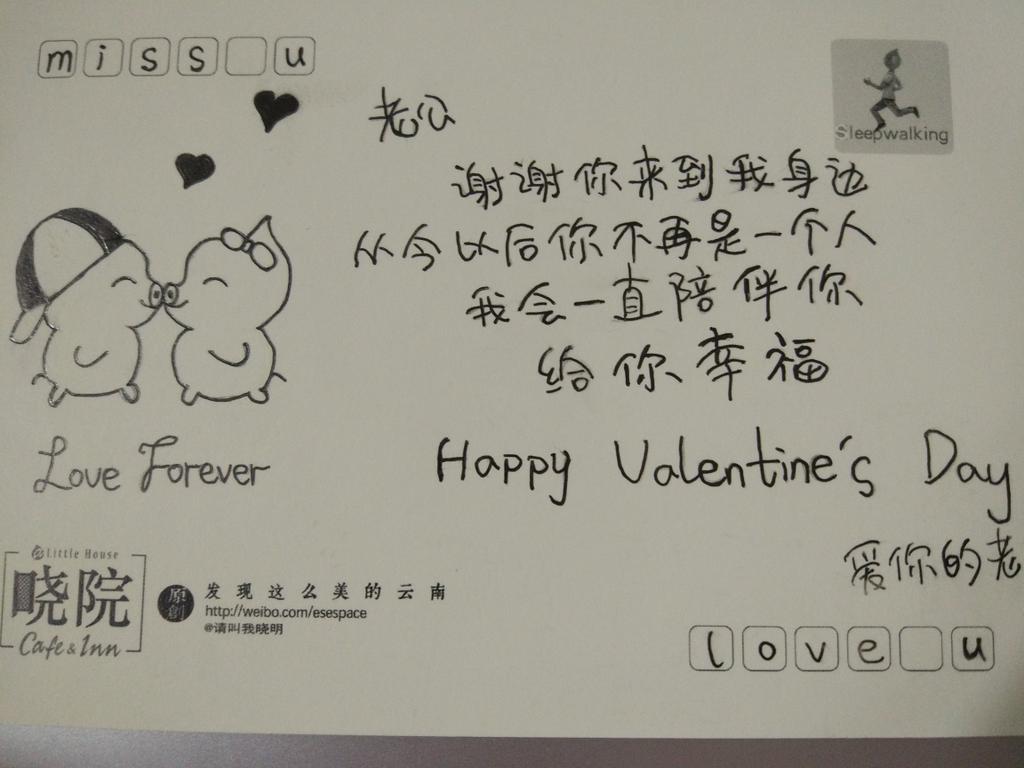 miss u
Sleepwalking
老公
谢谢你来到我身边
从今以后你不再是一个人
我会一直陪伴你
给你幸福
Love Forever
Happy Valentine's Day
爱你的老
Little House
晓院
Cafe & Inn
原創
发现这么美的云南
http://weibo.com/esespace
@请叫我晓明
love u